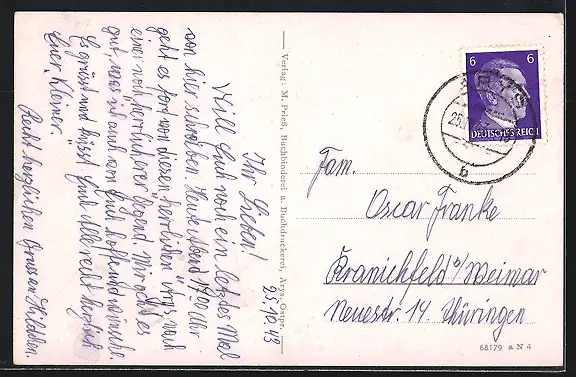 25.10.43
Ihr Lieben!
Will Euch noch ein letztes Mal
von hier schreiben. Heut Abend 17.09 Uhr
geht es fort von diesen herrlichen
einer noch herrlicheren Gegend. Mir geht es
gut, was ich auch von Euch hoffe und wünsche.
Es grüsst und küsst Euch alle recht herzlich
Euer Kleiner.
Recht herzlichen Gruss an
Verlag: M. Prieß, Buchbinderei u. Buchdruckerei, Arys, Ostpr.
6 6
DEUTSCHES REICH
b
Fam.
Oscar Franke
Kranichfeld b/Weimar
Neuestr. 14. Thüringen
68179 a N 4